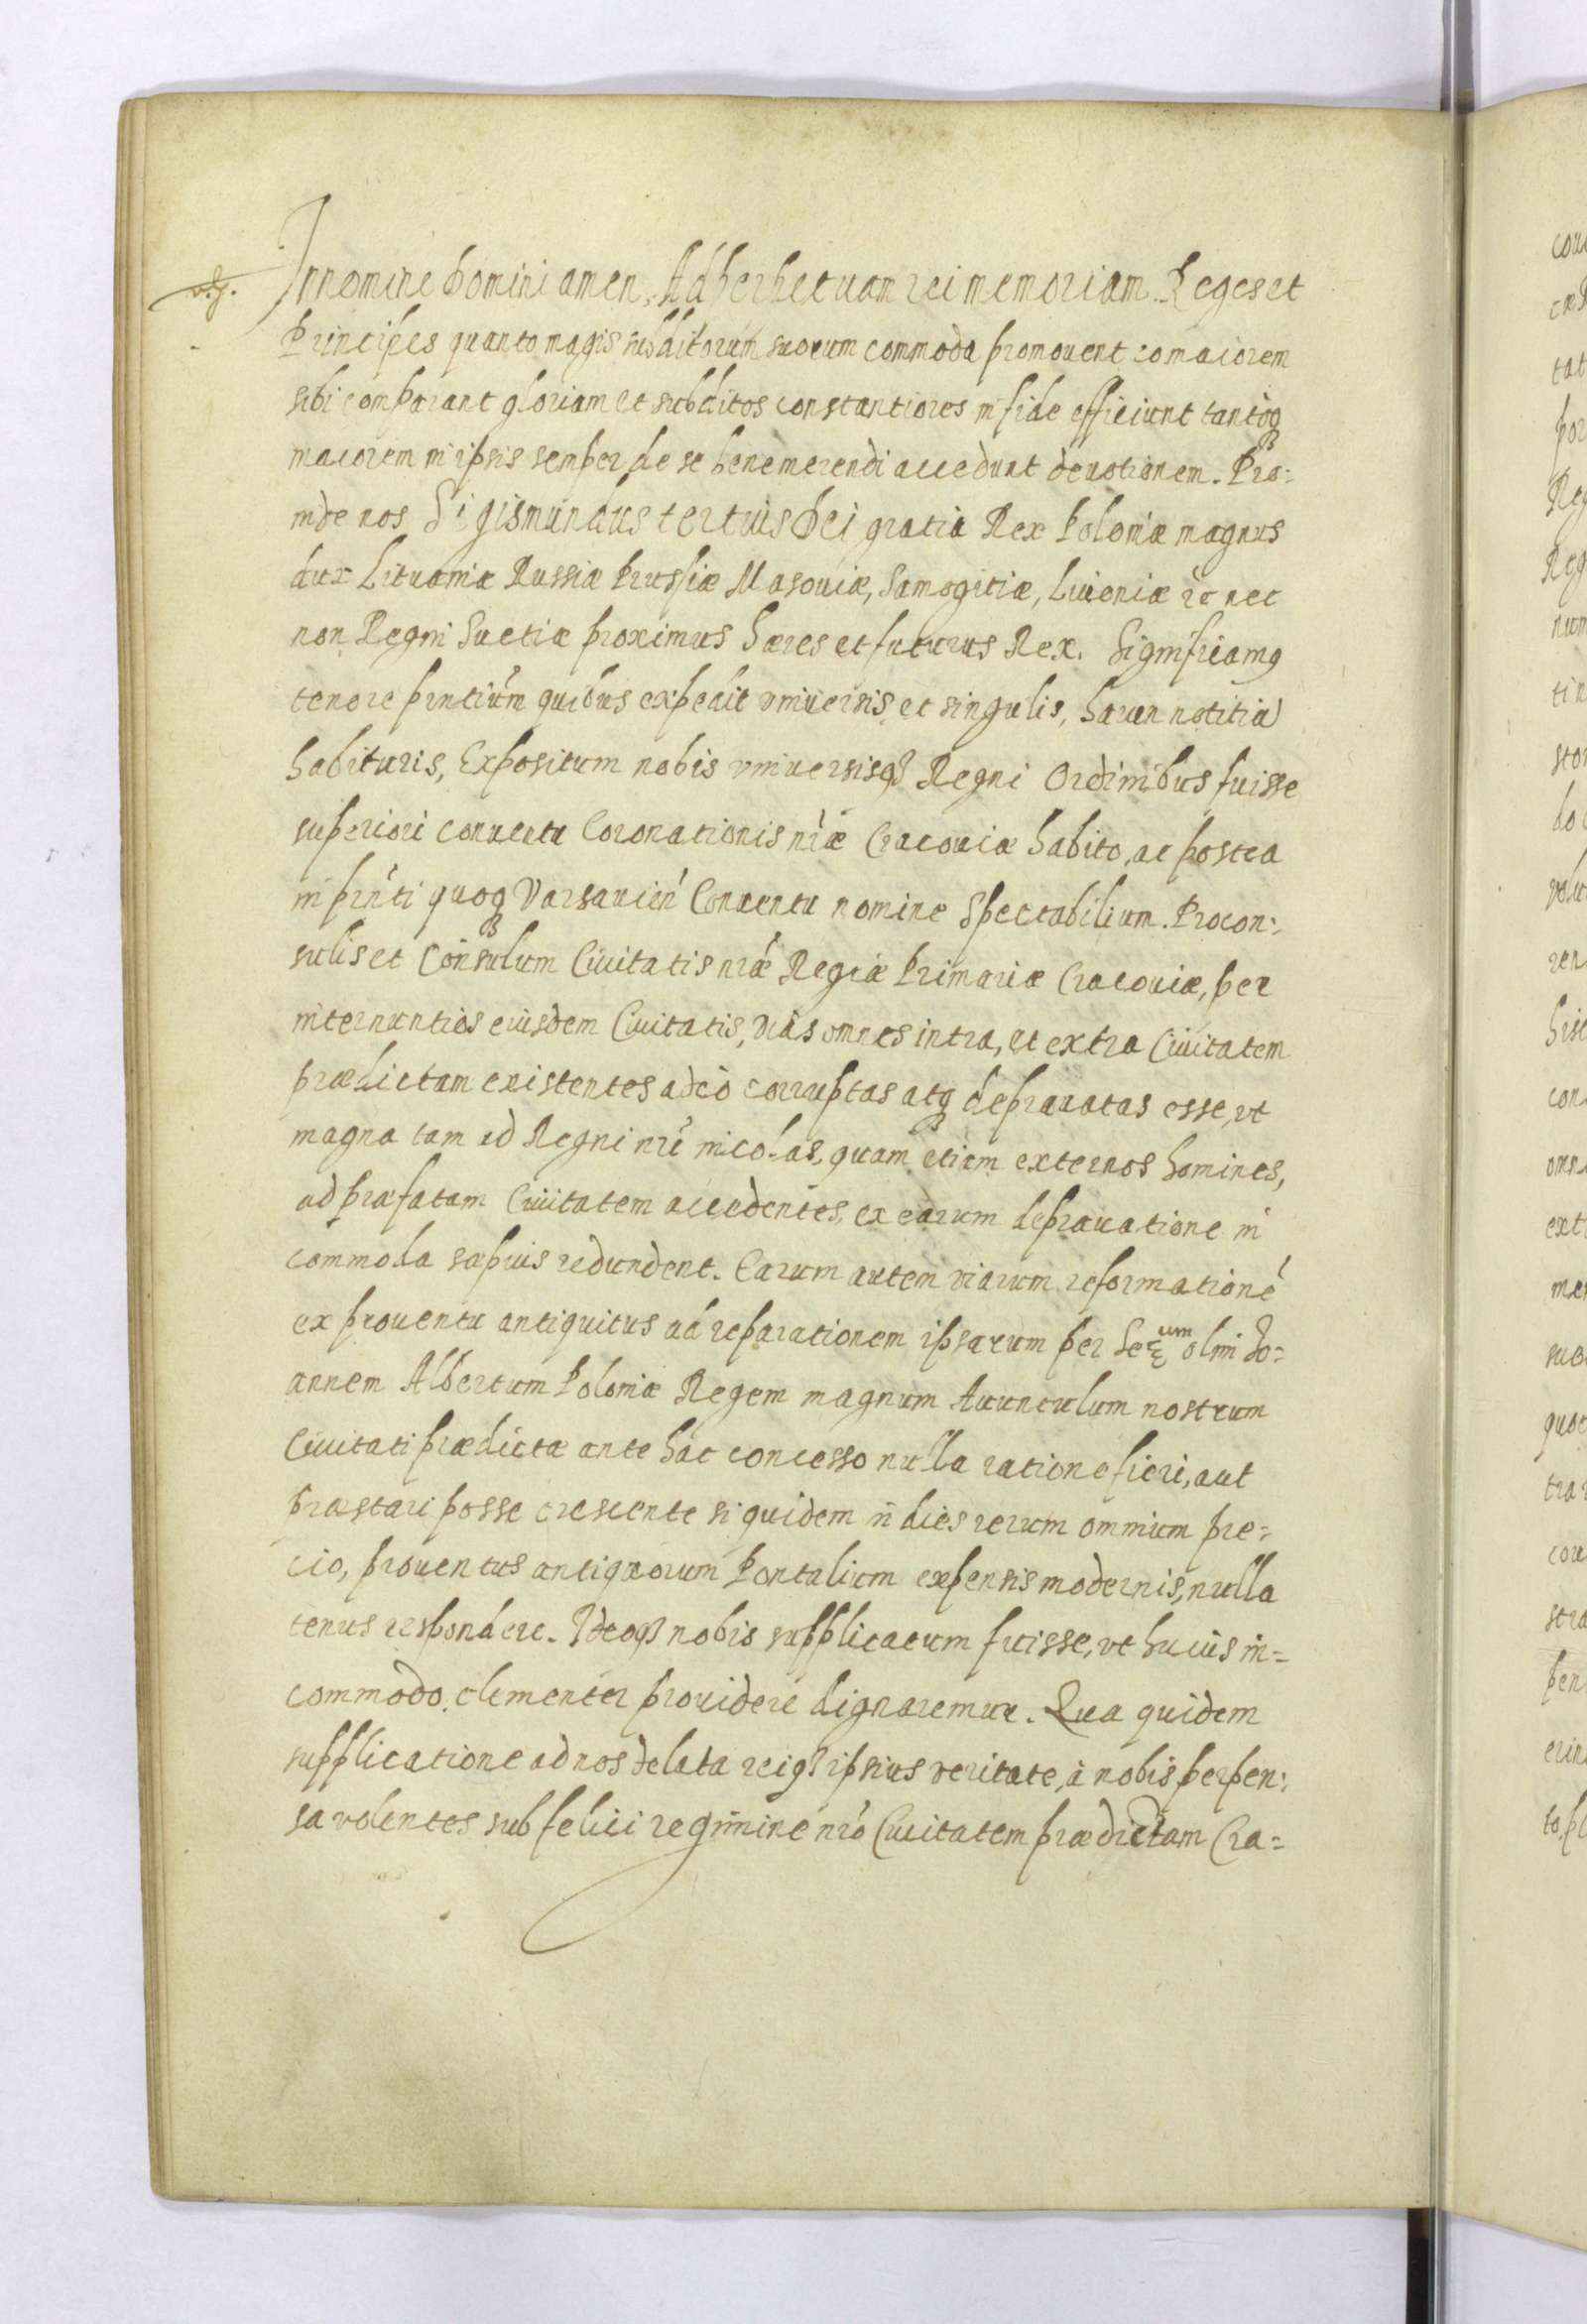 In nomine Domini amen. Ad perpetuam rei memoriam. Reges et
Principes quanto magis subditorum suorum commoda promouent eo maiorem
sibi comparant gloriam et subditos constantiores in fide efficiunt tantoq3
maiorem in ipsis semper de se benemerendi accedunt deuotionem. Pro-
inde nos Sigismundus tertius Dei gratia Rex Poloniæ magnus
dux Lituaniæ Russiæ Prussiæ Masouiæ, Samogitiæ, Liuoniæ etc nec
non Regni Suetiæ proximus hæres et futurus Rex. Significamq
tenore pñtium quibus expedit vniuersis et singulis, harum notitia
habituris, Expositum nobis vniuersisq3 Regni Ordinibus fuisse
superiori conuentu Coronationis nr̃æ Cracouiæ habito, ac postea
in præñti quoq3 Varsauien̄ Conuentu nomine Spectabilium. Procon-
sulis et Consulum Ciuitatis nræ Regiæ Primariæ Cracouiæ, per
internuntios eiusdem Ciuitatis, vias omnes intra, et extra Ciuitatem
prædictam existentes adeò corruptas atq3 deprauatas esse, vt
magna tam ad Regni nrĩ incolas, quam etiam externos homines,
ad præfatam Ciuitatem accedentes, ex earum deprauatione in
commoda sæpius redundent. Earum autem viarum reformationē
ex prouentu antiquitus ad reparationem ipsarum per Ser:um olim Jo-
annem Albertum Poloniæ Regem magnum Auunculum nostrum
Ciuitati prædictæ ante hac concesso nulla ratione fieri, aut
præstari posse crescente siquidem in dies rerum omnium pre-
cio, prouentus antiquorum Pontalium expensis modernis, nulla
tenus respondere. Ideoq3 nobis supplicatum fuisse, vt huius in-
commodo clementer prouidere dignaremur. Qua quidem
supplicatione ad nos delata reiq3 ipsius veritate, à nobis perpen-
sa volentes sub felici regimine nrõ Ciuitatem prædictam Cra-